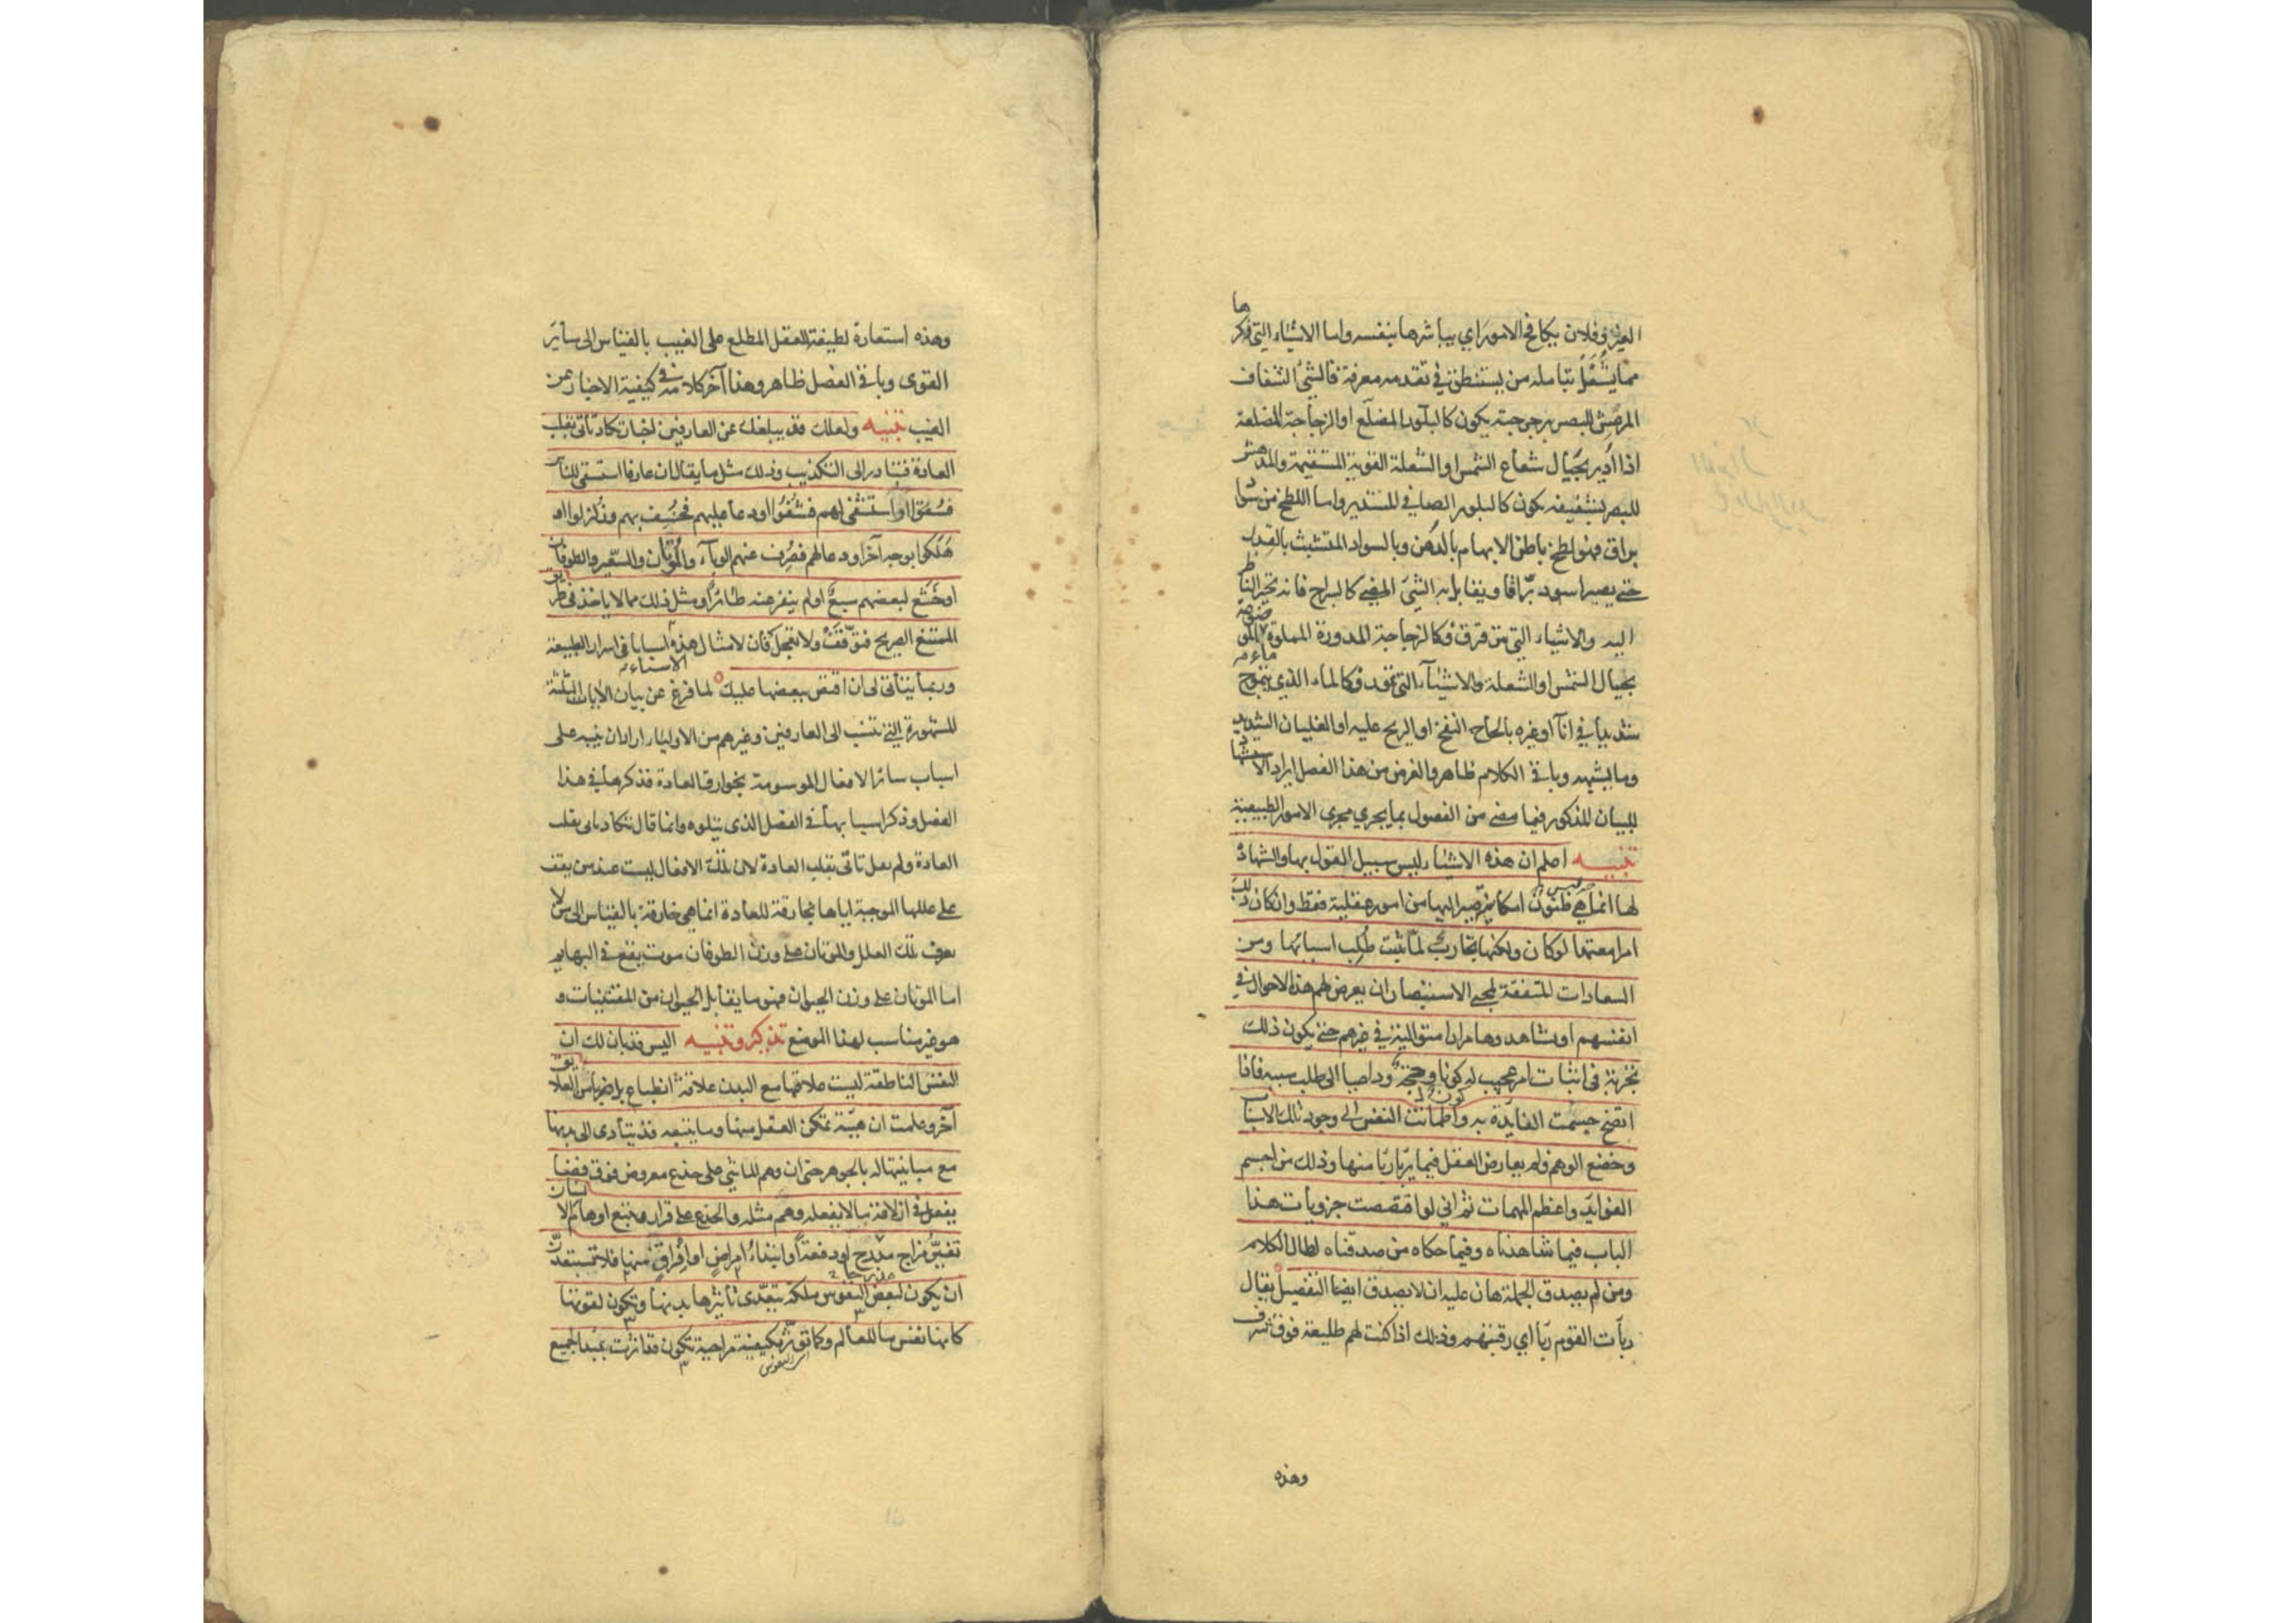 العزيز وفلان يكافح الامور اي يباشرها بنفسه واما الاشياء التي ذكرها
مما يشغل بتامله من يستنطق في تقدمه معرفة فالشئ الشفاف
المرعش للبصر برجرجته يكون كالبلور المضلع او الزجاجة المضلعة
اذا ادير بحيال شعاع الشمس او الشعلة القوية المستقيمة والمدهش
للبصر بشفيفه يكون كالبلور الصافي المستدير واما اللطخ من سواد
براق فهو لطخ باطن الابهام بالدهن وبالسواد المتشبث بالقدر
حتى يصير اسود براقا ويقابل به الشئ المضئ كالسراج فانه يحير الناظر
اليه والاشياء التي تترقرق فكالزجاجة المدورة المملوة ماء الموضوعة
بحيال الشمس او الشعلة والاشيآء التي تمور فكالماء الذي يتموج
شديدا في انآ او غيره بالحاح النفخ او الريح عليه او الغليان الشديد
وما يشبهه وباقي الكلام ظاهر والغرض من هذا الفصل ايراد الاستشهاد
للبيان المذكور فيما مضى من الفصول بما يجري مجرى الامور الطبيعية
تنبيه اعلم ان هذه الاشياء ليس سبيل القول بها والشهادة
لها انما هي ظنون امكانية صير اليها من امور عقلية فقط وان كان ذلك
امرا معتمدا لو كان ولكنها تجارب لما ثبتت طلب اسبابها ومن
السعادات المتفقة لمحبي الاستبصار ان يعرض لهم هذه الاحوال في
انفسهم او يشاهدوها مرارا متوالية في غيرهم حتى يكون ذلك
تجربة في اثبات امر عجيب له كون وحجة وداعيا الى طلب سببه فاذا
اتضح جسمت الفايدة به واطمانت النفس الى وجود تلك الاسباب
وخضع الوهم ولم يعارض العقل فيما يربا ربأها منها وذلك من اجسم
الفوايد واعظم المهمات ثم اني لو اقتصصت جزويات هذا
الباب فيما شاهدناه وفيما حكاه من صدقناه لطال الكلام
ومن لم يصدق الجملة هان عليه ان لا يصدق ايضا التفصيل يقال
ربأت القوم ربأ اي رقبتهم وذلك اذا كنت لهم طليعة فوق شرف
وهذه
وهذه استعارة لطيفة للعقل المطلع على الغيب بالقياس الى سائر
القوى وباقي الفصل ظاهر وهذا آخر كلامه في كيفية الاخبار عن
الغيب تنبيه ولعلك قد يبلغك عن العارفين اخبار تكاد تأتي بقلب
العادة فتبادر الى التكذيب وذلك مثل ما يقال ان عارفا استسقى للناس
فسقوا او استشفى لهم فشفوا او دعا عليهم فخسف بهم وزلزلوا او
هلكوا بوجه آخر او دعا لهم فصرف عنهم الوبآء والموتان والسعير والطوفان
او خشع لبعضهم سبع او لم ينفر عنه طائر او مثل ذلك مما لا ياخذ في طريق
الممتنع الصريح فتوقف ولا تعجل فان لامثال هذه اسبابا في اسرار الطبيعة
وربما يتأتى لي ان اقتص بعضها عليك لما فرغ عن بيان الايات الثلثة
المشهورة التي تنسب الى العارفين وغيرهم من الاولياء اراد ان ينبه على
اسباب سائر الافعال الموسومة بخوارق العادة فذكرها في هذا
الفصل وذكر اسبابها في الفصل الذي يتلوه وانما قال تكاد تاتي بقلب
العادة ولم يقل تاتي بقلب العادة لان تلك الافعال ليست عند من يقف
على عللها الموجبة اياها بخارقة للعادة انما هي خارقة بالقياس الى من لا
يعرف تلك العلل والموتان على وزن الطوفان موت يقع في البهايم
اما الموتان على وزن الحيوان فهو ما يقابل الحيوان من المقتنيات و
هو غير مناسب لهذا الموضع تذكرة وتنبيه اليس قد بان لك ان
النفس الناطقة ليست علاقتها مع البدن علاقة انطباع بل ضربا من العلايق
آخر وعلمت ان هيئة تمكن العقل منها وما يتبعه قد يتأدى الى بدنها
مع مباينتها له بالجوهر حتى ان وهم الماشي على جذع معروض فوق فضاء
يفعل في ازلاقه ما لا يفعله وهم مثله والجذع على قرار ويتبع اوهام الانسان
تغير مزاج مدرج او دفعة وابتداء امراض او افراق منها فلا تستبعدن
ان يكون لبعض النفوس ملكة يتعدى تأثيرها بدنها وتكون لقوتها
كانها نفس ما للعالم وكما تؤثر بكيفية مزاجية تكون قد اثرت بمبدا لجميع